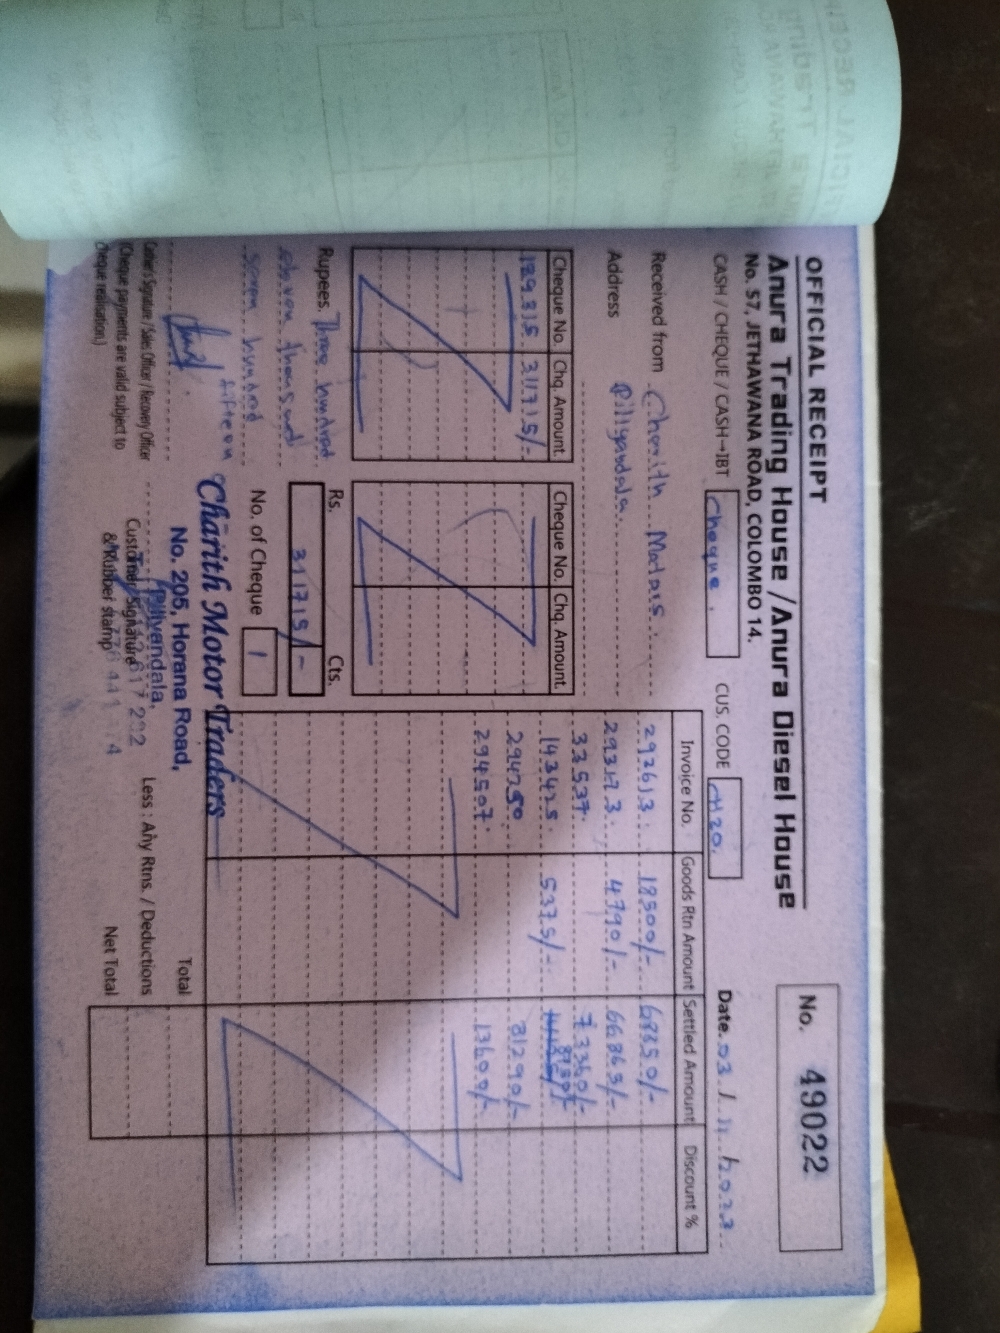 OFFICIAL RECEIPT
Anura Trading House / Anura Diesel House
No. 57, JETHAWANA ROAD, COLOMBO 14.
No. 49022
CASH / CHEQUE / CASH→IBT Cheque.
CUS. CODE
Date. 03 / 11
Received from Charith Motors.
Address Piliyandala.
Cheque No. Chq. Amount. Cheque No. Chq. Amount.
189315 311715/-
Invoice No. Goods Rtn Amount Settled Amount Discount %
292613. 18500/- 68850/-
293173 4790/- 66865/-
33537. 73360/-
143425. 5375/- 8750/-
294750 81290/-
294507. 13600/-
Rupees. Three hundred
eleven thousand
seven hundred fifteen
Rs. Cts.
311715/-
No. of Cheque 1
Charith Motor Traders
No. 205, Horana Road,
Piliyandala.
Cashier's Signature / Sales Officer / Recovery Officer
(Cheque payments are valid subject to
cheque realisation.)
Customer Signature
& Rubber stamp
Total
Less : Any Rtns. / Deductions
Net Total